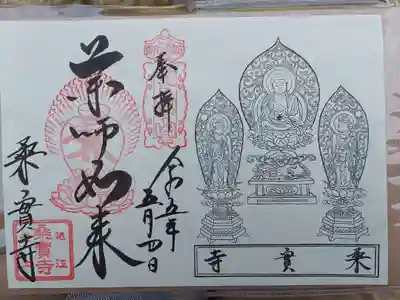 奉拝
令和五年
五月四日
薬師如来
乗實寺
乗實寺
乗實寺